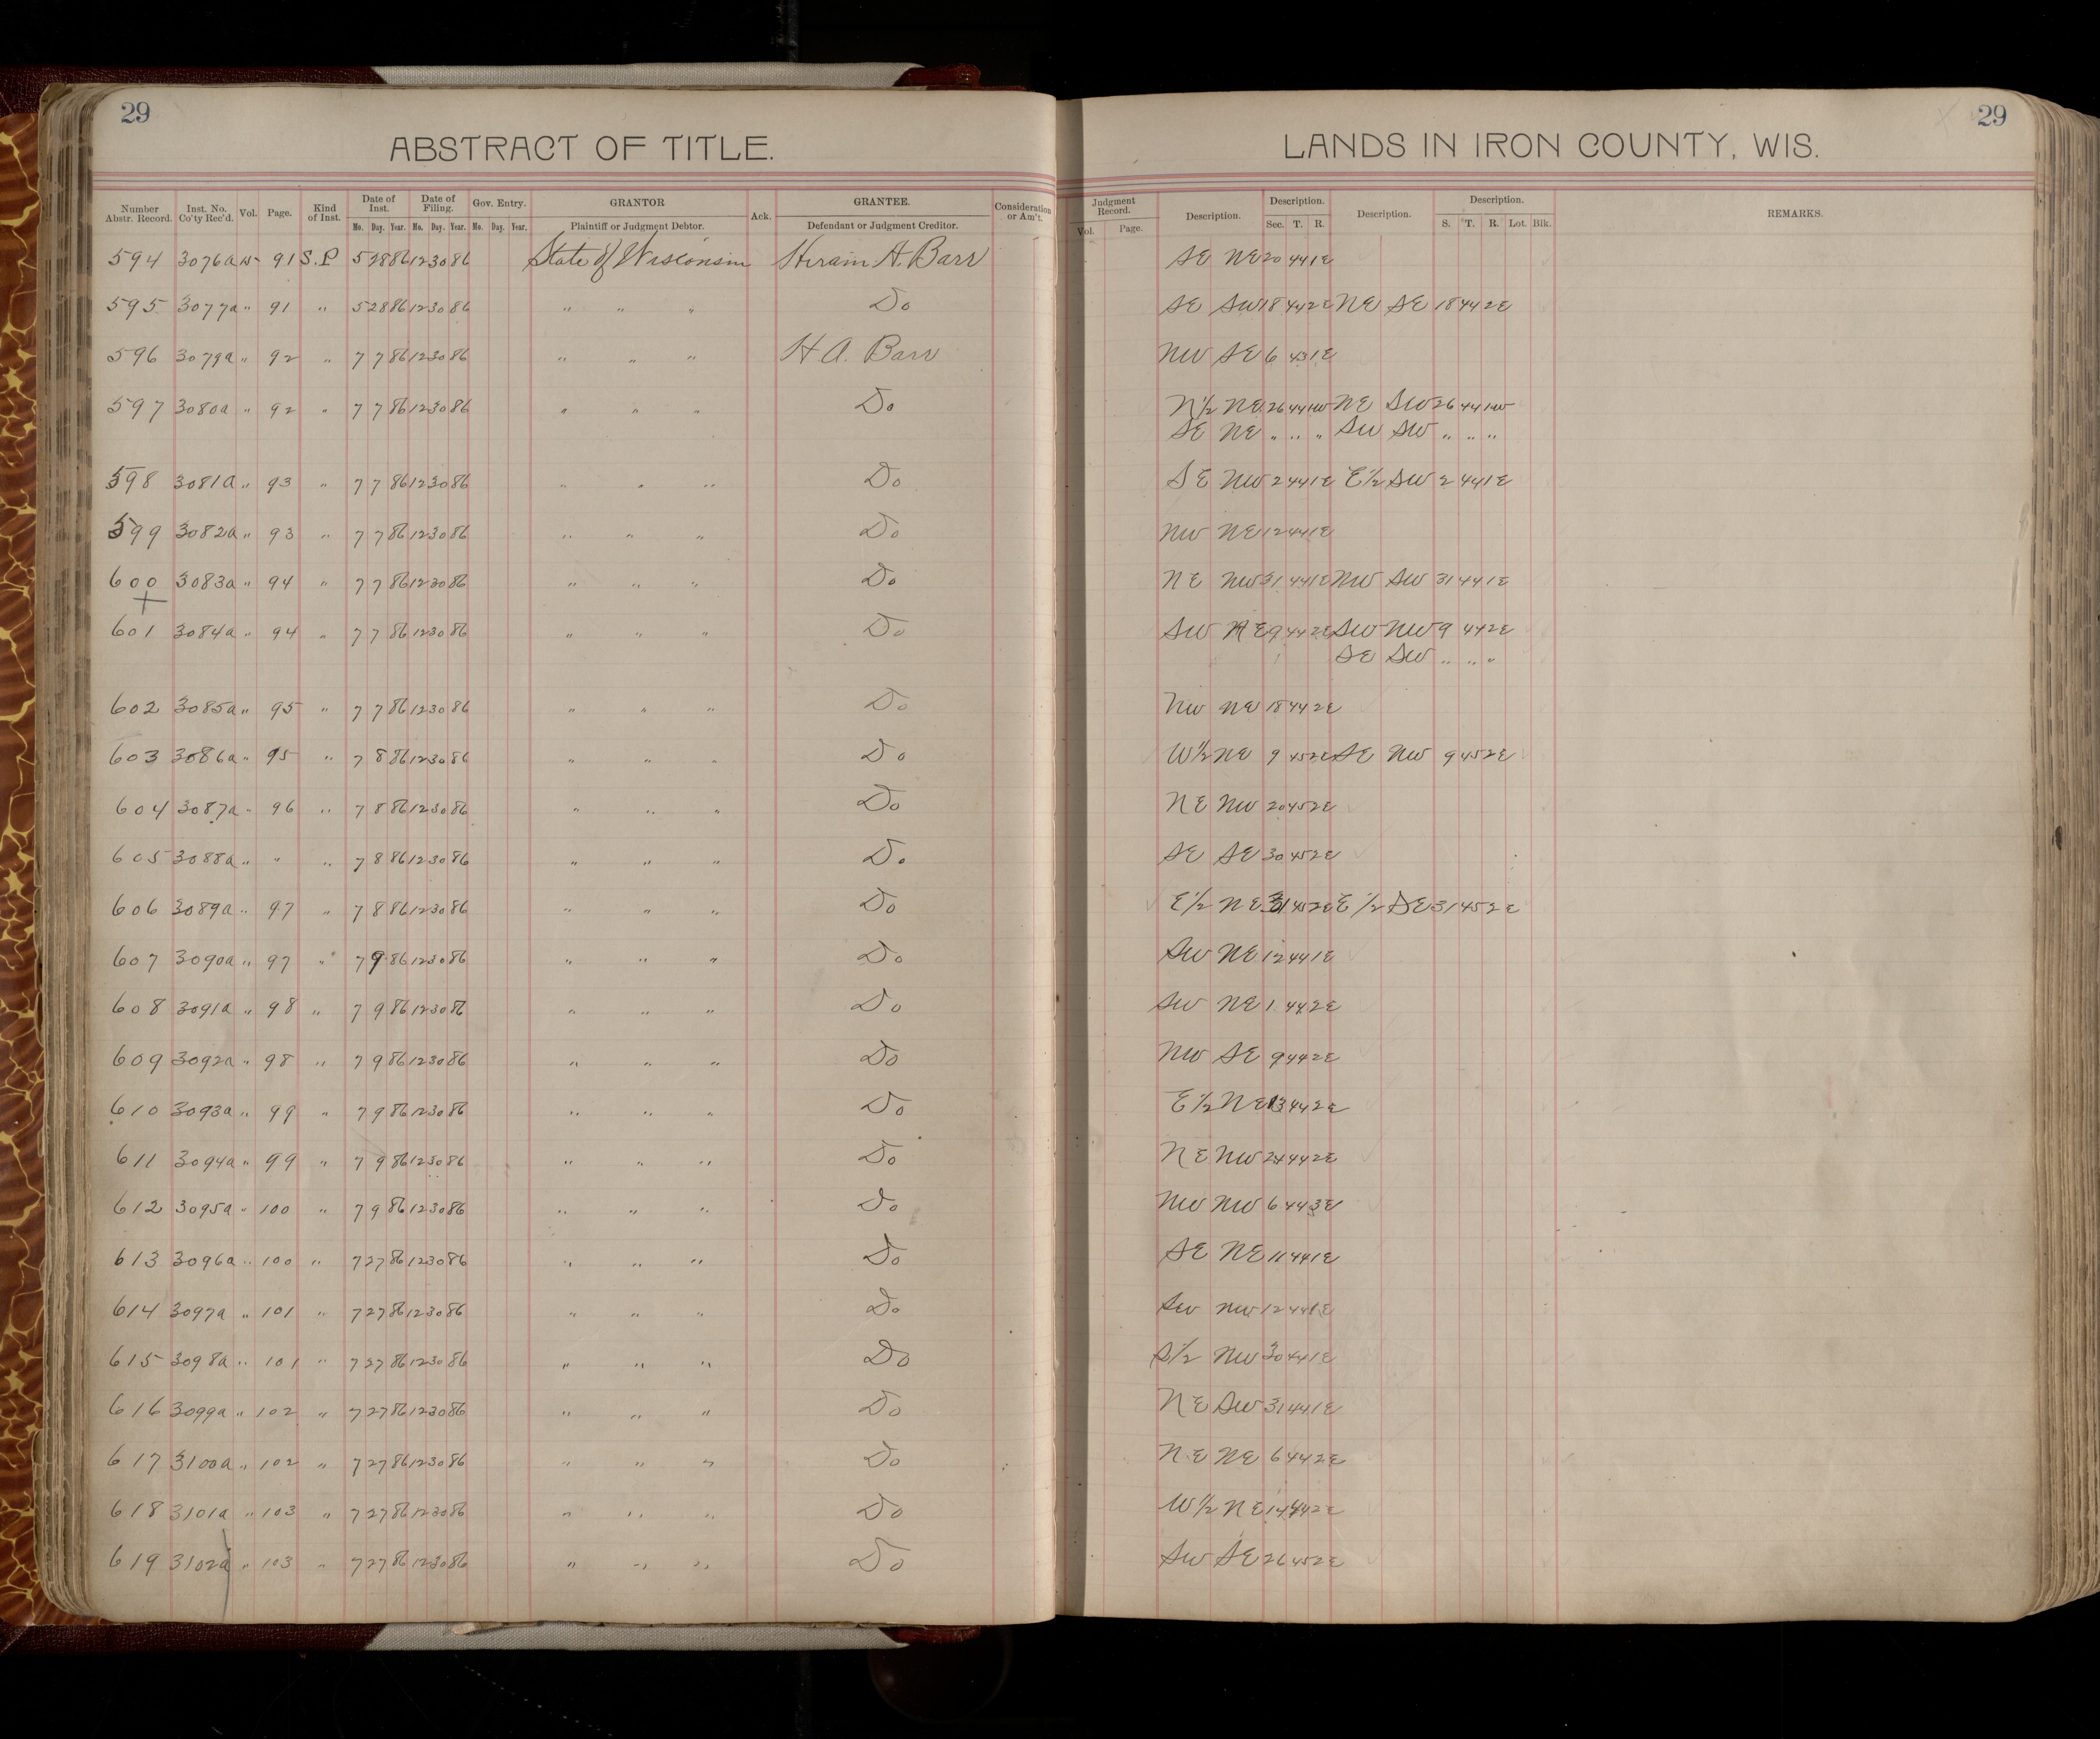 29
ABSTRACT OF TITLE.
Number Abstr. Record. Inst. No. Co'ty Rec'd. Vol. Page. Kind of Inst. Date of Inst. Mo. Day. Year. Date of Filing. Mo. Day. Year. Gov. Entry. Mo. Day. Year. GRANTOR Plaintiff or Judgment Debtor. Ack. GRANTEE. Defendant or Judgment Creditor. Consideration or Am't.
29
LANDS IN IRON COUNTY, WIS.
Judgment Record. Vol. Page. Description. Description. Sec. T. R. Description. Description. S. T. R. Lot. Blk. REMARKS.
594 3076a 15 91 S.P 5 28 86 12 30 86 State of Wisconsin Hiram A. Barr SE NE 20 44 1E
595 3077a " 91 " 5 28 86 12 30 86 " " " Do SE SW 18 44 2E NE SE 18 44 2E
596 3079a " 92 " 7 7 86 12 30 86 " " " H A. Barr NW SE 6 43 1E
597 3080a " 92 " 7 7 86 12 30 86 " " " Do N½ NE 26 44 1W NE SW 26 44 1W
SE NE " " " SW SW " " "
598 3081a " 93 " 7 7 86 12 30 86 " " " Do SE NW 2 44 1E E½ SW 2 44 1E
599 3082a " 93 " 7 7 86 12 30 86 " " " Do NW NE 12 44 1E
600 3083a " 94 " 7 7 86 12 30 86 " " " Do NE NW 31 44 1E NW SW 31 44 1E
601 3084a " 94 " 7 7 86 12 30 86 " " " Do SW NE 9 44 2E SW NW 9 44 2E
SE SW " " "
602 3085a " 95 " 7 7 86 12 30 86 " " " Do NW NE 18 44 2E
603 3086a " 95 " 7 8 86 12 30 86 " " " Do W½ NE 9 45 2E SE NW 9 45 2E
604 3087a " 96 " 7 8 86 12 30 86 " " " Do NE NW 20 45 2E
605 3088a " " " 7 8 86 12 30 86 " " " Do SE SE 30 45 2E
606 3089a " 97 " 7 8 86 12 30 86 " " " Do E½ NE 31 45 2E E½ SE 31 45 2E
607 3090a " 97 " 7 9 86 12 30 86 " " " Do SW NE 12 44 1E
608 3091a " 98 " 7 9 86 12 30 86 " " " Do SW NE 1 44 2E
609 3092a " 98 " 7 9 86 12 30 86 " " " Do NW SE 9 44 2E
610 3093a " 99 " 7 9 86 12 30 86 " " " Do E½ NE 13 44 2E
611 3094a " 99 " 7 9 86 12 30 86 " " " Do NE NW 24 44 2E
612 3095a " 100 " 7 9 86 12 30 86 " " " Do NW NW 6 44 3E
613 3096a " 100 " 7 27 86 12 30 86 " " " Do SE NE 11 44 1E
614 3097a " 101 " 7 27 86 12 30 86 " " " Do SW NW 12 44 1E
615 3098a " 101 " 7 27 86 12 30 86 " " " Do S½ NW 30 44 1E
616 3099a " 102 " 7 27 86 12 30 86 " " " Do NE SW 31 44 1E
617 3100a " 102 " 7 27 86 12 30 86 " " " Do NE NE 6 44 2E
618 3101a " 103 " 7 27 86 12 30 86 " " " Do W½ NE 14 44 2E
619 3102a " 103 " 7 27 86 12 30 86 " " " Do SW SE 26 45 2E